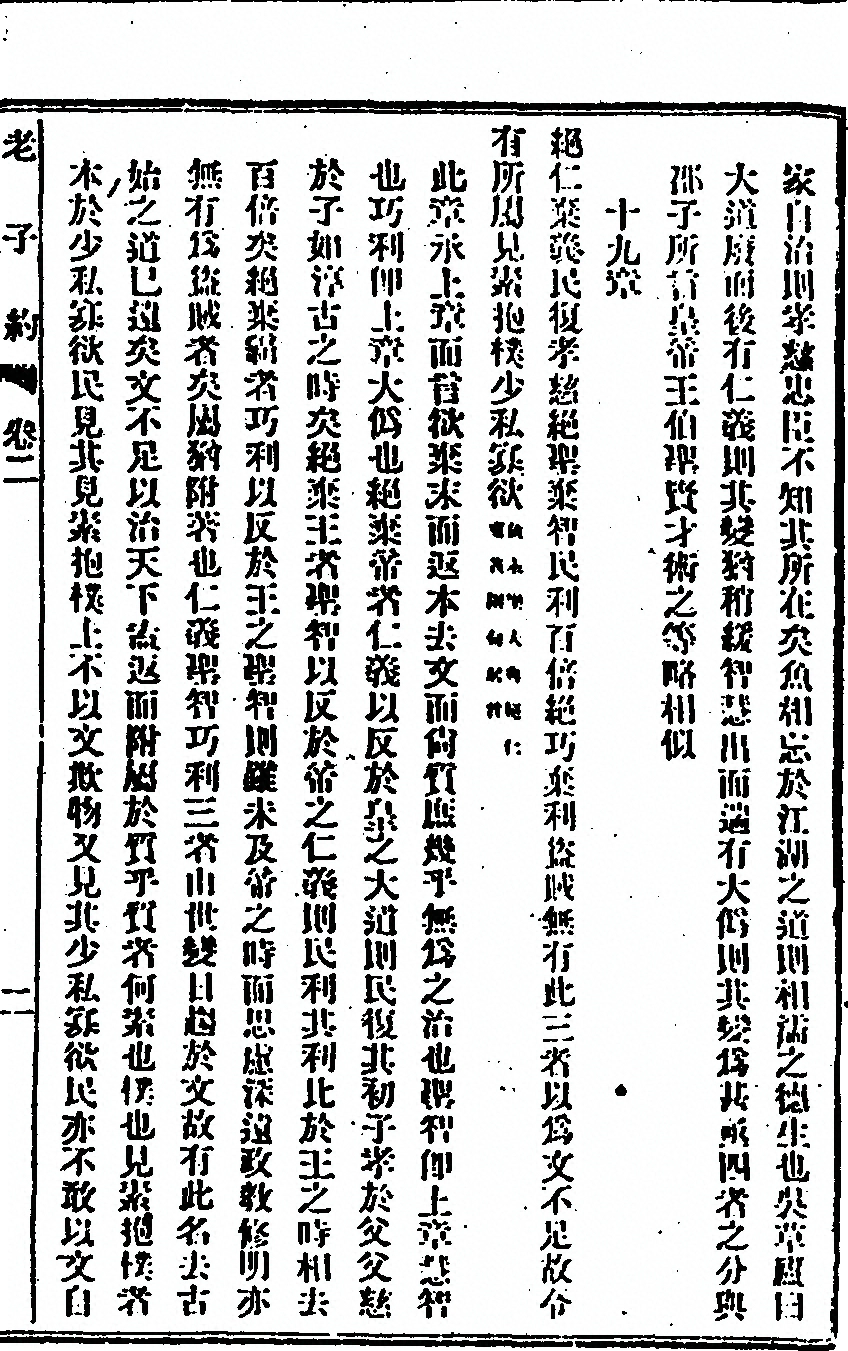 家自治則孝慈忠臣不知其所在矣魚相忘於江湖之道則相濡之德生也吳草廬曰
大道廢而後有仁義則其變猶稍緩智慧出而遽有大僞則其變爲甚所四者之分與
邵子所言皇帝王伯聖賢才術之等略相似
十九章
絕仁棄義民復孝慈絕聖棄智民利百倍絕巧棄利盜賊無有此三者以爲文不足故令
有所屬見素抱樸少私寡欲
此章承上章而言欲棄末而返本去文而尙質庶幾乎無爲之治也聖智卽上章慧智
也巧利卽上章大僞也絕棄帝者仁義以反於皇之大道則民復其初子孝於父父慈
於子如淳古之時矣絕棄王者聖智以反於帝之仁義則民利其利比於王之時相去
百倍矣絕棄霸者巧利以反於王之聖智則雖未及帝之時而思慮深遠政敎修明亦
無有爲盜賊者矣屬猶附著也仁義聖智巧利三者由世變日趨於文故有此名去古
始之道已遠矣文不足以治天下盍返而附屬於質乎質者何素也樸也見素抱樸者
本於少私寡欲民見其見素抱樸上不以文欺物又見其少私寡欲民亦不敢以文自
老子約 卷二 二